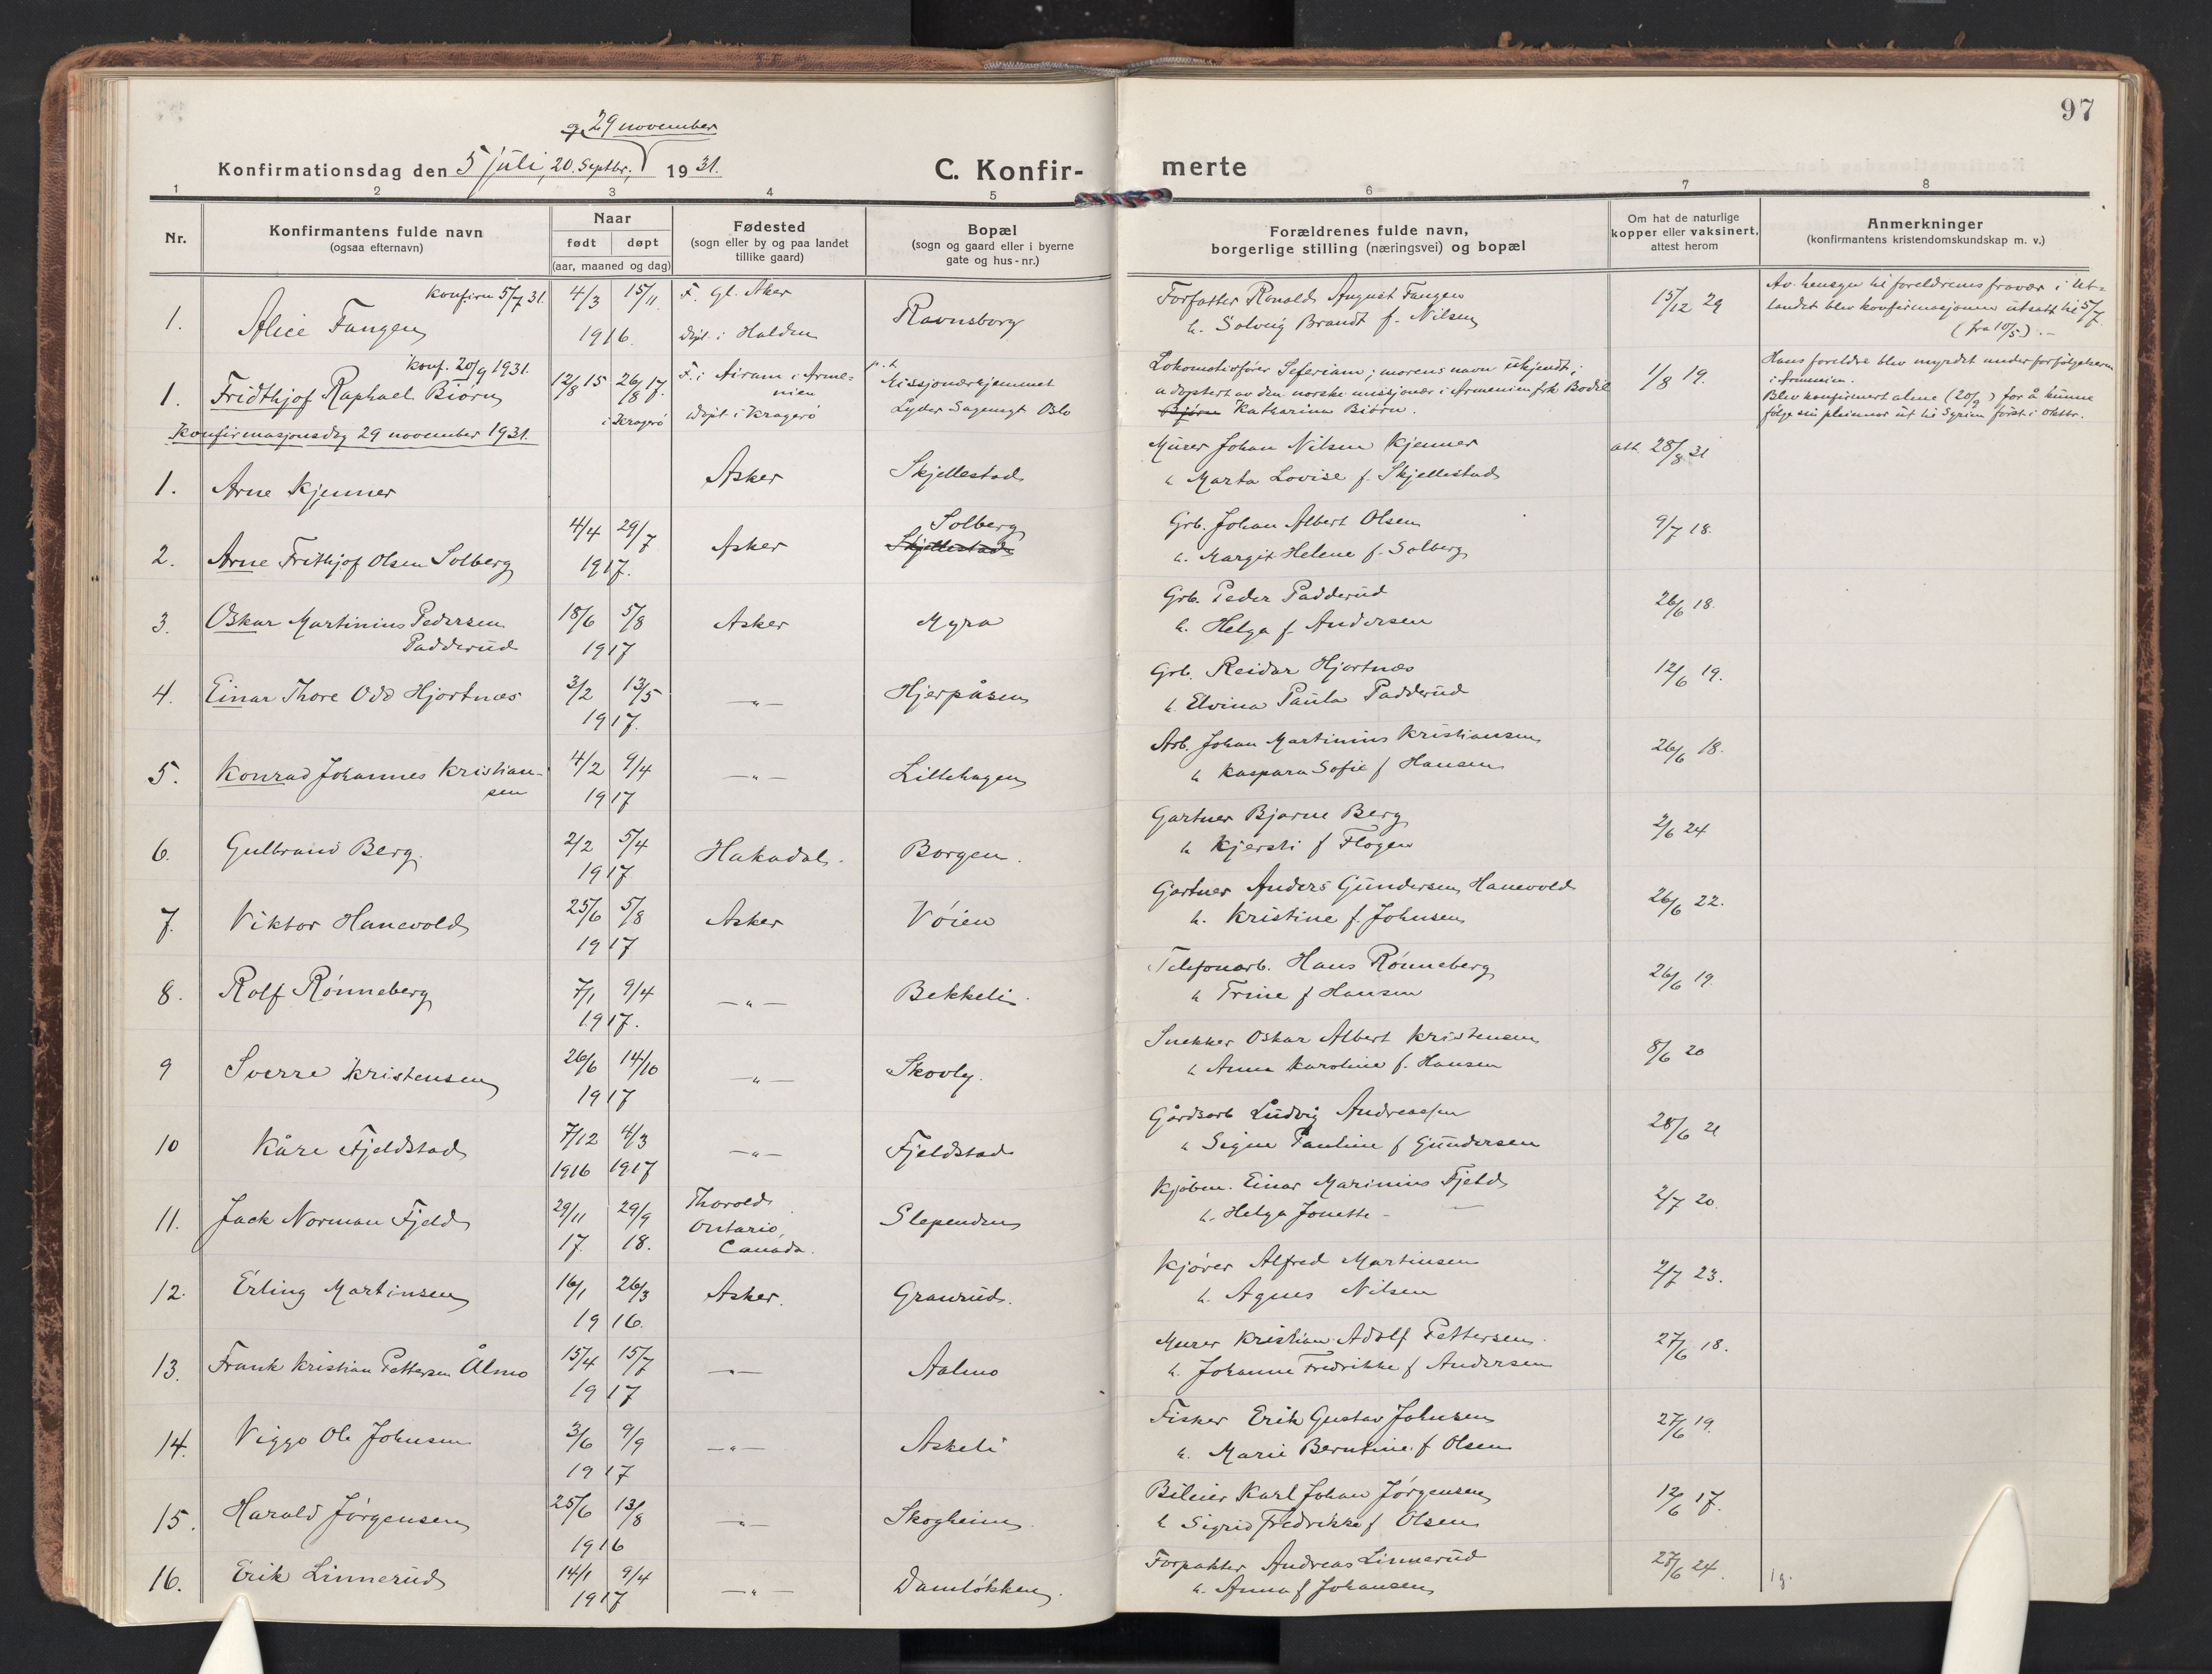 97
og 29 november
Konfirmationsdag den 5 juli, 20. Septbr, 1931.
C. Konfirmerte
1 2 3 4 5 6 7 8
Nr.
Konfirmantens fulde navn
(ogsaa efternavn)
Naar
født døpt
(aar, maaned og dag)
Fødested
(sogn eller by og paa landet
tillike gaard)
Bopæl
(sogn og gaard eller i byerne
gate og hus-nr.)
Forældrenes fulde navn,
borgerlige stilling (næringsvei) og bopæl
Om hat de naturlige
kopper eller vaksinert,
attest herom
Anmerkninger
(konfirmantens kristendomskundskap m. v.)
konfirm 5/7 31.
1. Alice Fangen 4/3 15/11 1916.
F. Gl. Aker
døpt i Halden
Ravnsborg
Forfatter Ronald August Fangen
h. Solveig Brandt f. Nilsen
15/12 29
Av hensyn til foreldrenes fravær i ut-
landet blev konfirmasjonen utsatt til 5/7
(fra 10/5).-
konf. 20/9 1931.
1. Fridthjof Raphael Biørn 12/8 15 26/8 17.
i Kragerø
F. i Airam i Arme-
nien
døpt i Kragerø
p.t.
Missjonærhjemmet
Lyder Sagensgt Oslo
Lokomotivfører Seferiam; morens navn ukjendt;
adoptert av den norske missjonær i Armenien frk Bodil
Bjørn Katharina Biørn.
1/8 19.
Hans foreldre blev myrdet under forfølgelsene
i Armenien.
Blev konfirmert alene (20/9) for å kunne
følge sin pleiemor ut til Syrien først i oktbr.
Konfirmasjonsdag 29 november 1931.
1. Arne Kjenner Asker Skjellestad
Murer Johan Nilsen Kjenner
h Marta Lovise f. Skjellestad
att. 28/8 31
2. Arne Frithjof Olsen Solberg 4/4 29/7 1917. Asker
Solberg
Skjellestad
Grb. Johan Albert Olsen
h. Margit Helene f. Solberg
9/7 18.
3. Oskar Martinius Pedersen
Padderud
18/6 5/8 1917 Asker Myra
Grb. Peder Padderud
h. Helga f. Andersen
26/6 18.
4. Einar Thore Odd Hjortnæs 3/2 13/5 1917. —"— Hjerpåsen
Grb. Reidar Hjortnæs
h. Elvina Paula Padderud
12/6 19.
5. Konrad Johannes Kristian-
sen
4/2 9/4 1917 —"— Lillehagen
Arb. Johan Martinius Kristiansen
h Kaspara Sofie f Hansen
26/6 18.
6. Gulbrand Berg. 2/2 5/4 1917 Hakadal. Borgen.
Gartner Bjarne Berg
h Kjersti f Flogen
2/6 24
7. Viktor Hanevold 25/6 5/8 1917 Asker Vøien
Gartner Anders Gundersen Hanevold
h. Kristine f. Johnsen
26/6 22.
8. Rolf Rønneberg 7/1 9/4 1917. —"— Bekkeli.
Telefonarb. Hans Rønneberg
h Trine f Hansen
26/6 19.
9 Sverre Kristensen 26/6 14/10 1917 —"— Skovly.
Snekker Oskar Albert Kristensen
h Anna Karoline f. Hansen
8/6 20
10 Kåre Fjeldstad 7/12 4/3 1916 1917 —"— Fjeldstad
Gårdsarb Ludvig Andreassen
h Signe Pauline f Gundersen
28/6 21
11. Jack Norman Fjeld 29/11 29/9 17. 18.
Thorold
Ontario,
Canada.
Slependen
Kjøbm. Einar Marinius Fjeld
h. Helga Jonette - —
2/7 20.
12. Erling Martinsen 16/1 26/3 1916. Asker. Granrud.
Kjører Alfred Martinsen
h. Agnes Nilsen
2/7 23.
13. Frank Kristian Pettersen Ålmo 15/4 15/7 1917 —"— Aalmo
Murer Kristian Adolf Pettersen.
h. Johanne Fredrikke f Andersen
27/6 18.
14. Viggo Ole Johnsen 3/6 9/9 1917 —"— Askeli
Fisker Erik Gustav Johnsen
h. Marie Berntine f Olsen
27/6 19.
15. Harald Jørgensen 25/6 13/8 1916 —"— Skogheim.
Bileier Karl Johan Jørgensen
h Sigrid Fredrikke f Olsen
12/6 17.
16. Erik Linnerud 14/1 9/4 1917 —"— Damløkken.
Forpakter Andreas Linnerud
h. Anna f Johansen
27/6 24.